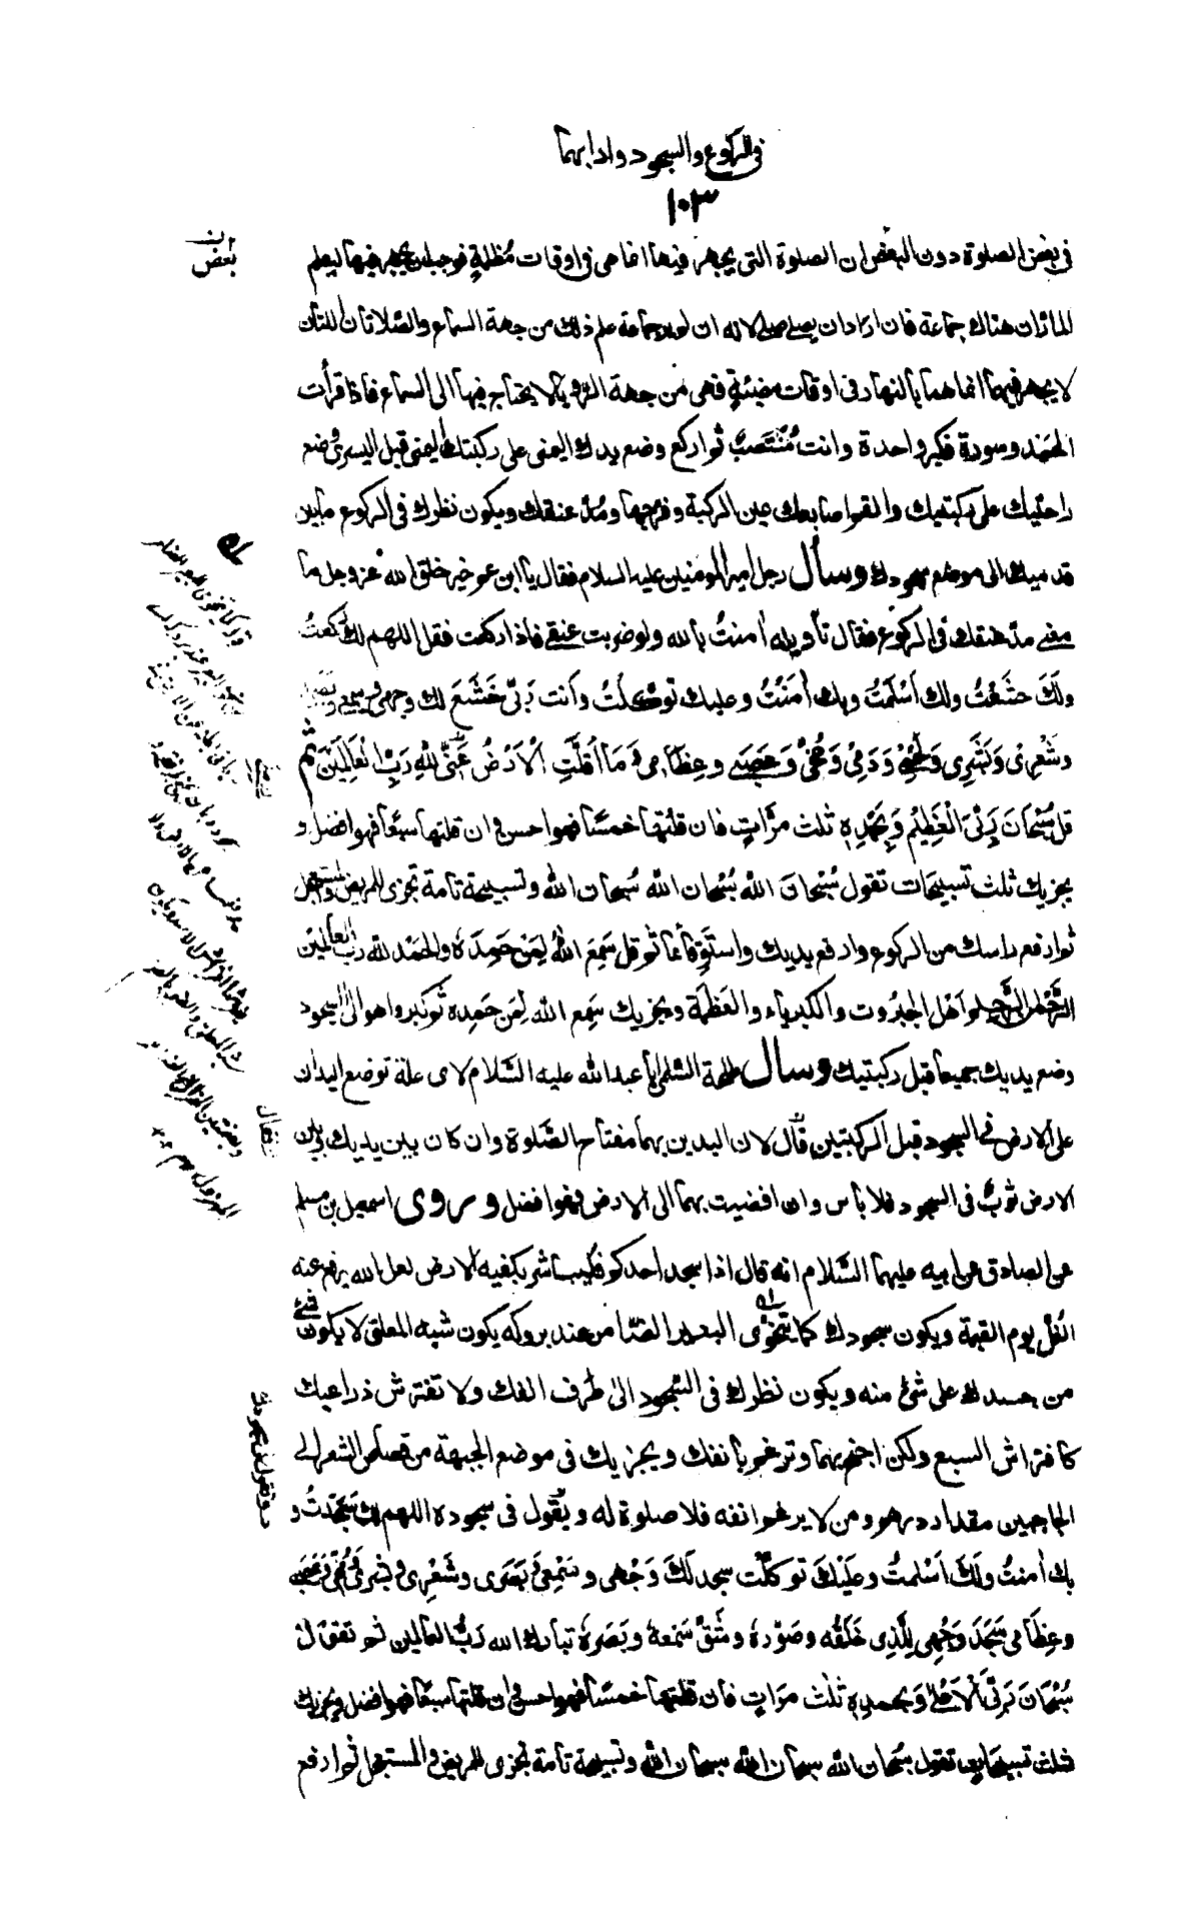 في الركوع والسجود وادابهما
١٠٣
في بعض الصلوة دون البعض ان الصلوة التى يجهر فيها انما هى فى اوقات مُظلمةٍ فوجب ان يجهر فيها ليعلم
المارّ ان هناك جماعة فان اراد ان يصلى صلى لانه ان لم ير جماعة علم ذلك من جهة السماع والصّلاتان اللتان
لا يجهر فيهما انما هما بالنهار فى اوقات مضيئةٍ فهى من جهة الرّؤية لا يحتاج فيها الى السماع فاذا قرأت
الحمد وسورة فكبر واحدة وانت مُنْتَصبٌ ثم اركع وضع يدك اليمنى على ركبتك اليمنى قبل اليسرى وضع
راحتيك على ركبتيك والقم اصابعك عين الركبة وفرجها ومُدّ عنقك ويكون نظرك فى الركوع مابين
قدميك الى موضع سجودك وسأل رجل امير المومنين عليه السلام فقال يا ابن عم خير خلق الله عزوجل ما
معنى مدّ عنقك فى الركوع فقال تأويله امنتُ بالله ولو ضربت عنقى فاذا ركعت فقل اللهم لك ركعتُ
ولَكَ خشَعْتُ ولك اَسْلَمتُ وبك امَنْتُ وعليك توكّلتُ وانت رَبّى خَشَعَ لك وجهى وسمعى وبصرى
وشَعْرِى وَبَشَرِى وَلَحْمِى وَدَمِى وَمُخّى وَعَصَبى وعِظَامِى وَمَا اَقَلّتِ الْاَرْضُ مِنّى للّٰهِ رَبّ الْعَالَمِيْنَ ثم
قل سُبْحَانَ رَبّىَ الْعَظِيْمِ وَبِحَمْدِهٖ ثلث مرّاتٍ فان قلتها خمسًا فهو احسن وان قلتها سبعًا فهو افضل و
يجزيك ثلث تسبيحات تقول سُبْحانَ الله سُبْحان الله سُبحان الله وتسبيحة تامة تجزى للمريض والمستعجل
ثم ارفع راسك من الركوع وارفع يديك واستَوِ قائما ثم قل سَمِعَ اللهُ لِمَنْ حَمِدَهُ والحَمْد لله ربّ العالمين
الرّحْمٰن الرّحيم اَهْل الجبَرُوت والكبرياء والعَظمَة ويجزيك سَمِع الله لِمَن حَمِده ثم كبر واهو الى السجود
وضع يديك جميعا قبل ركبتيك وسال طلحة السّلمى ابا عبدالله عليه السّلام لاى علة توضع اليدان
على الارض فى السجود قبل الركبتين قال لان اليدين بهما مفتاح الصّلوة وان كان بين يديك وبين
الارض ثوبٌ فى السجود فلا باس وان افضيت بهما الى الارض فهو افضل وروى اسمعيل بن مسلم
عن الصادق عن ابيه عليهما السّلام انه قال اذا سجد احدكم فليباشر بكفيه الارض لعل الله يدفع عنه
الغُلّ يوم القيمة ويكون سجودك كما يتخوّى البعير الضّامر عند بروكه يكون شبه المعلق لا يكون شىء
من جسدك على شئ منه ويكون نظرك فى السّجود الى طرف انفك ولا تفترش ذراعيك
كافتراش السبع ولكن اجنح بهما وترغم بانفك ويجزيك فى موضع الجبهة من قصاص الشعر الى
الحاجبين مقدار درهم ومن لا يرغم انفه فلا صلوة له ويقول فى سجوده اللهم لك سَجَدتُ و
بك امنتُ ولَكَ اَسْلمتُ وعلَيْكَ توكلّت سجد لَكَ وَجْهى وسَمْعِى وَبَصَرى وشَعْرِى وبشرى ومُخّى وعَصَبِى
وعِظَامى سَجَدَ وَجْهِى لِلّذِى خَلَقَه وصَوّرَهُ وشَقّ سَمْعهُ وبَصَرهُ تبارك الله رَبُّ العالمين ثم تقول
سُبْحَانَ رَبّىَ الاَعْلىٰ وَبحمدِهٖ ثلٰث مرّاتٍ فان قلتها خمسًا فهو احسن وان قلتها سبعًا فهو افضل ويجزيك
ثلث تسبيحات تقول سُبحان الله سبحان الله سبحان الله وتسبيحة تامة تجزى للمريض والمستعجل ثم ارفع
بعض
فقال
وتقول فى سجودك